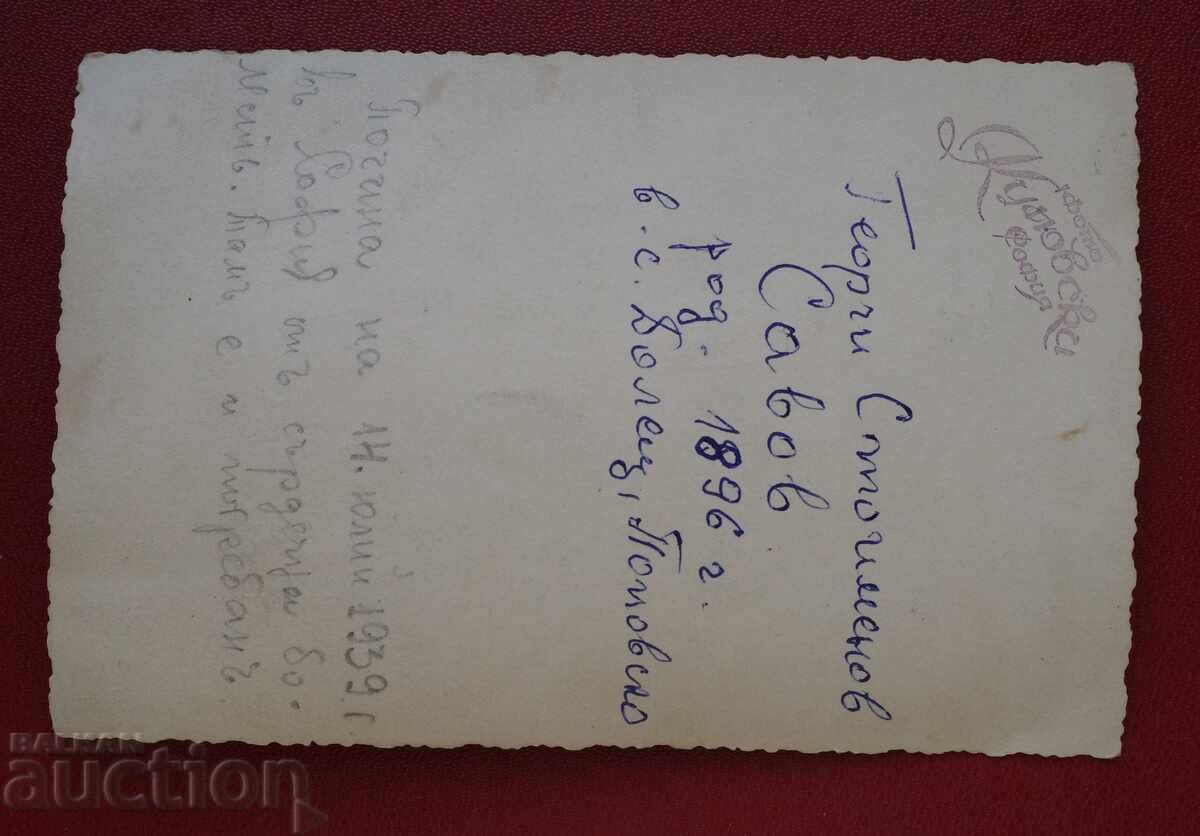 фото
Кутювски
София
Георги Стоименов
Савов
род. 1896 г.
в с. Долец, Поповско
Почина на 14. юлий 1939 г
въ София отъ сърдечна бо-
лесть. Тамъ е и погребанъ.
BALKAN
auction